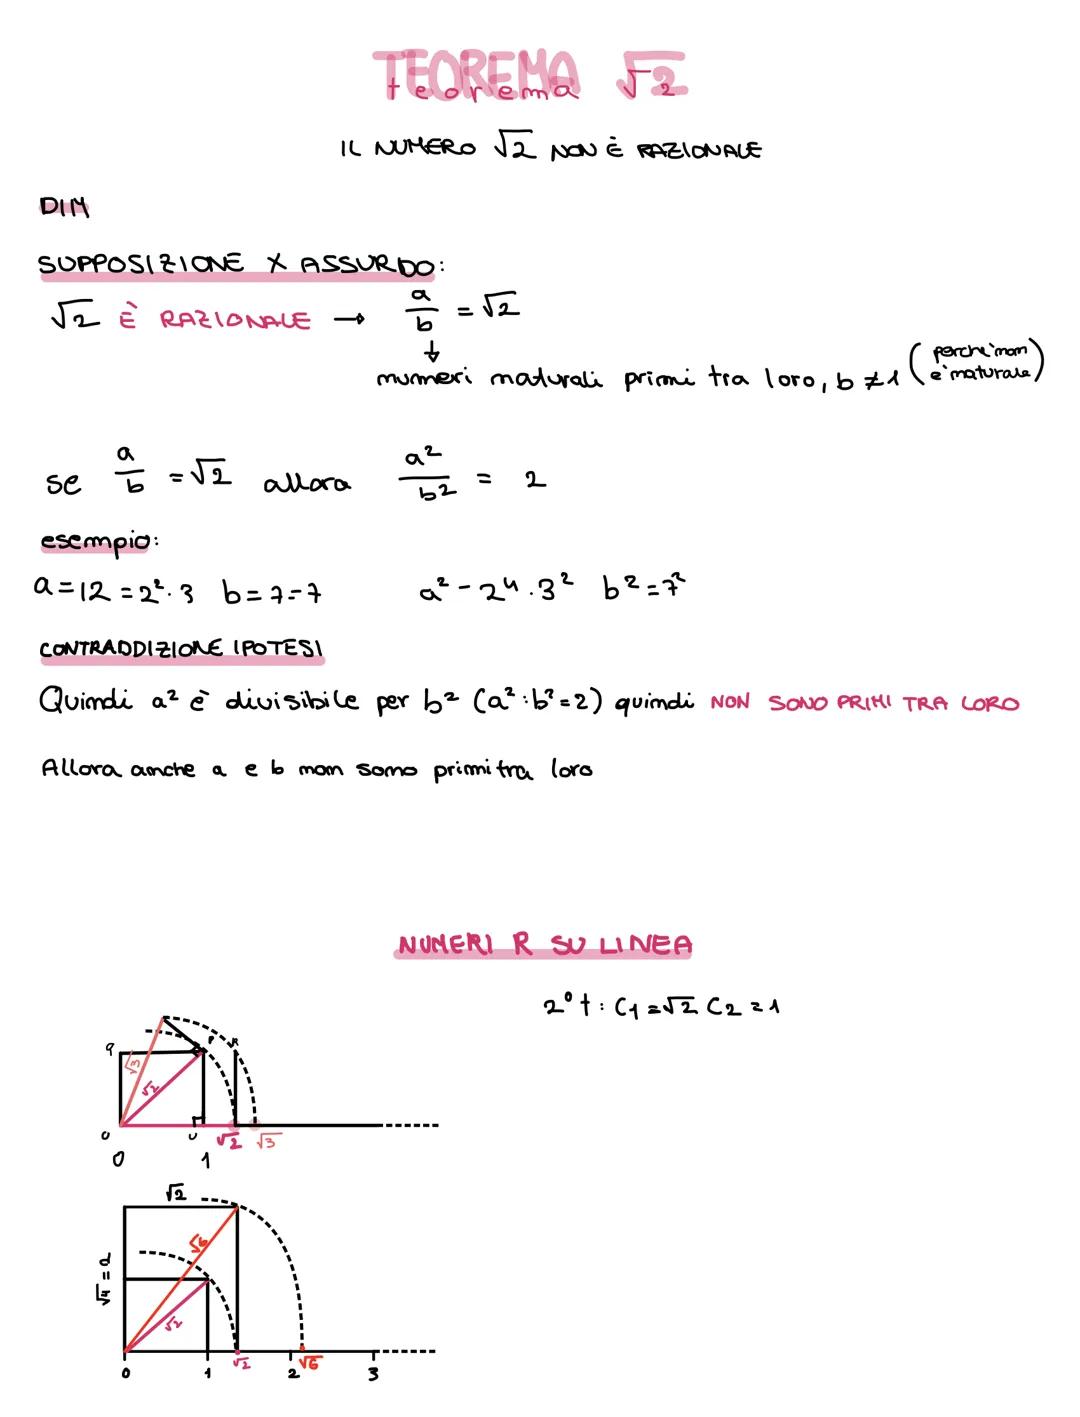 TEOREMA √2
teorema
IL NUMERO √2 NON È RAZIONALE
DIM
SUPPOSIZIONE X ASSURDO:
√2 È RAZIONALE → a/b = √2
↓
numeri naturali primi tra loro, b ≠ 1 (perche' non e' naturale)
se a/b = √2 allora a²/b² = 2
esempio:
a = 12 = 2² · 3 b = 7 - 7 a² - 2⁴ · 3² b² = 7²
CONTRADDIZIONE IPOTESI
Quindi a² è divisibile per b² (a² : b² = 2) quindi NON SONO PRIMI TRA LORO
Allora anche a e b non sono primi tra loro
NUMERI R SU LINEA
2° t: C₁ = √2 C₂ = 1
q P R
√3
√2
o U √2 √3
0 1
√2
√6
√4 = 2
√2
0 1 √2 2 √6 3